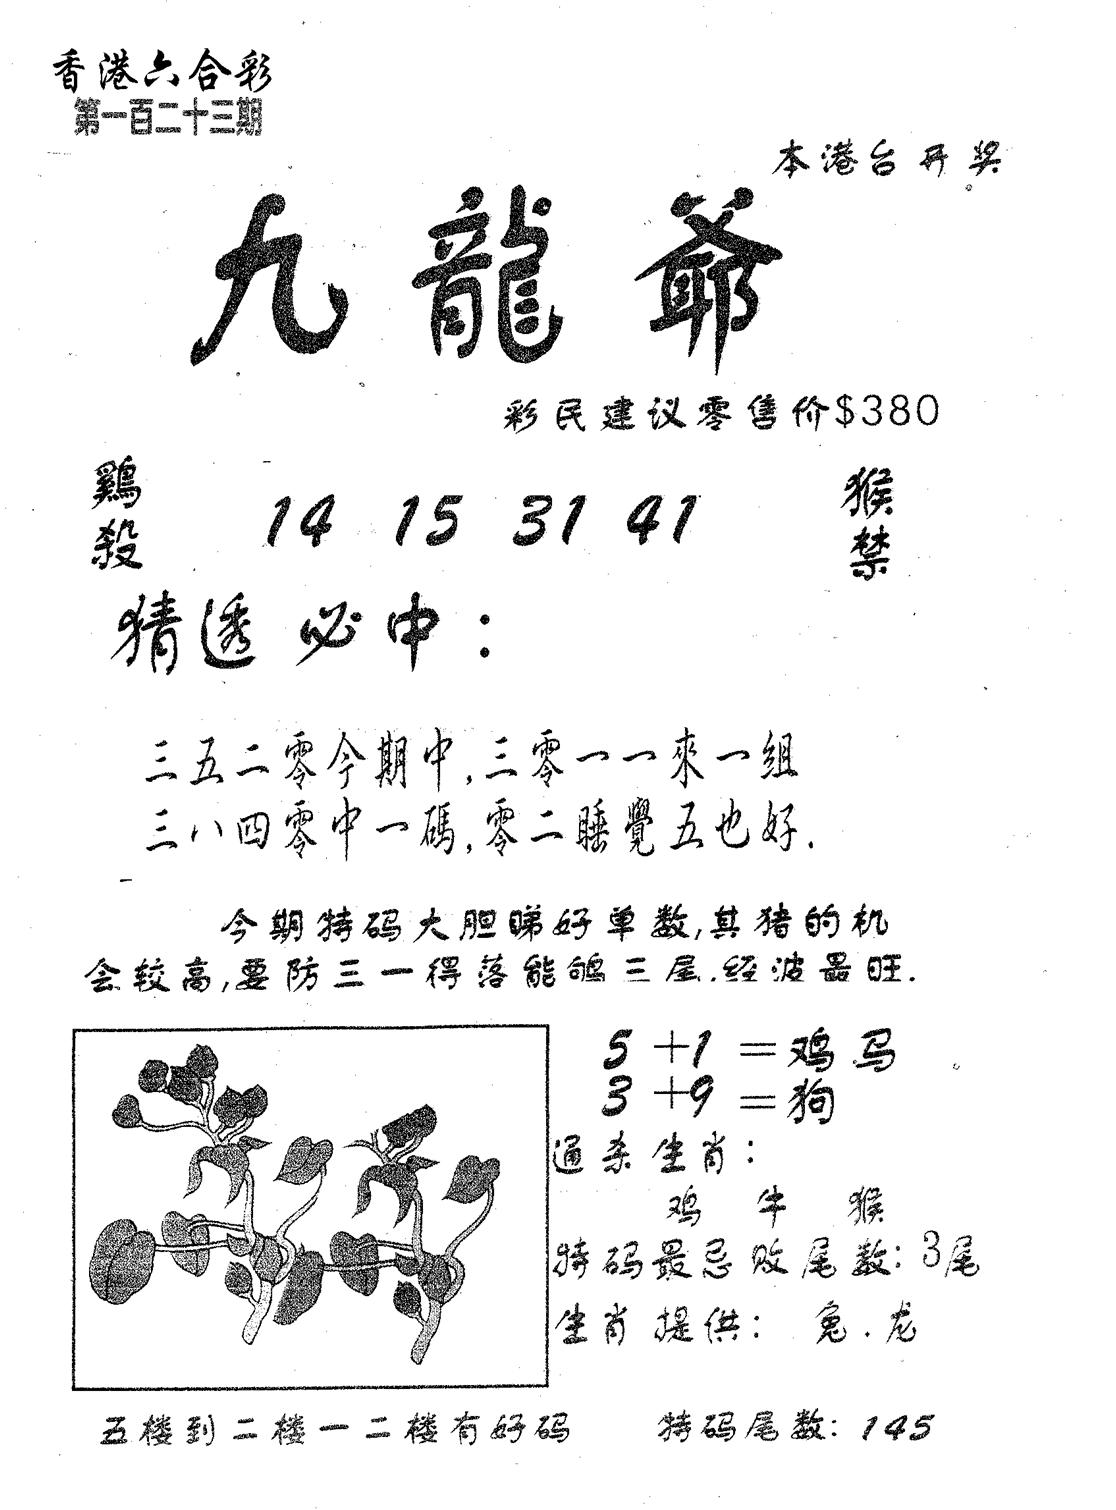 香港六合彩
第一百二十三期
本港台开奖
九龍爺
彩民建议零售价$380
鷄殺
14 15 31 41
猴禁
猜透必中：
三五二零今期中,三零一一來一組
三八四零中一碼,零二睡覺五也好.
今期特码大胆睇好单数,其猪的机
会较高,要防三一得落能鸲三尾.经波最旺.
5+1=鸡马
3+9=狗
通杀生肖：
鸡 牛 猴
特码最忌败尾数：3尾
生肖提供： 兔.龙
五楼到二楼一二楼有好码
特码尾数：145